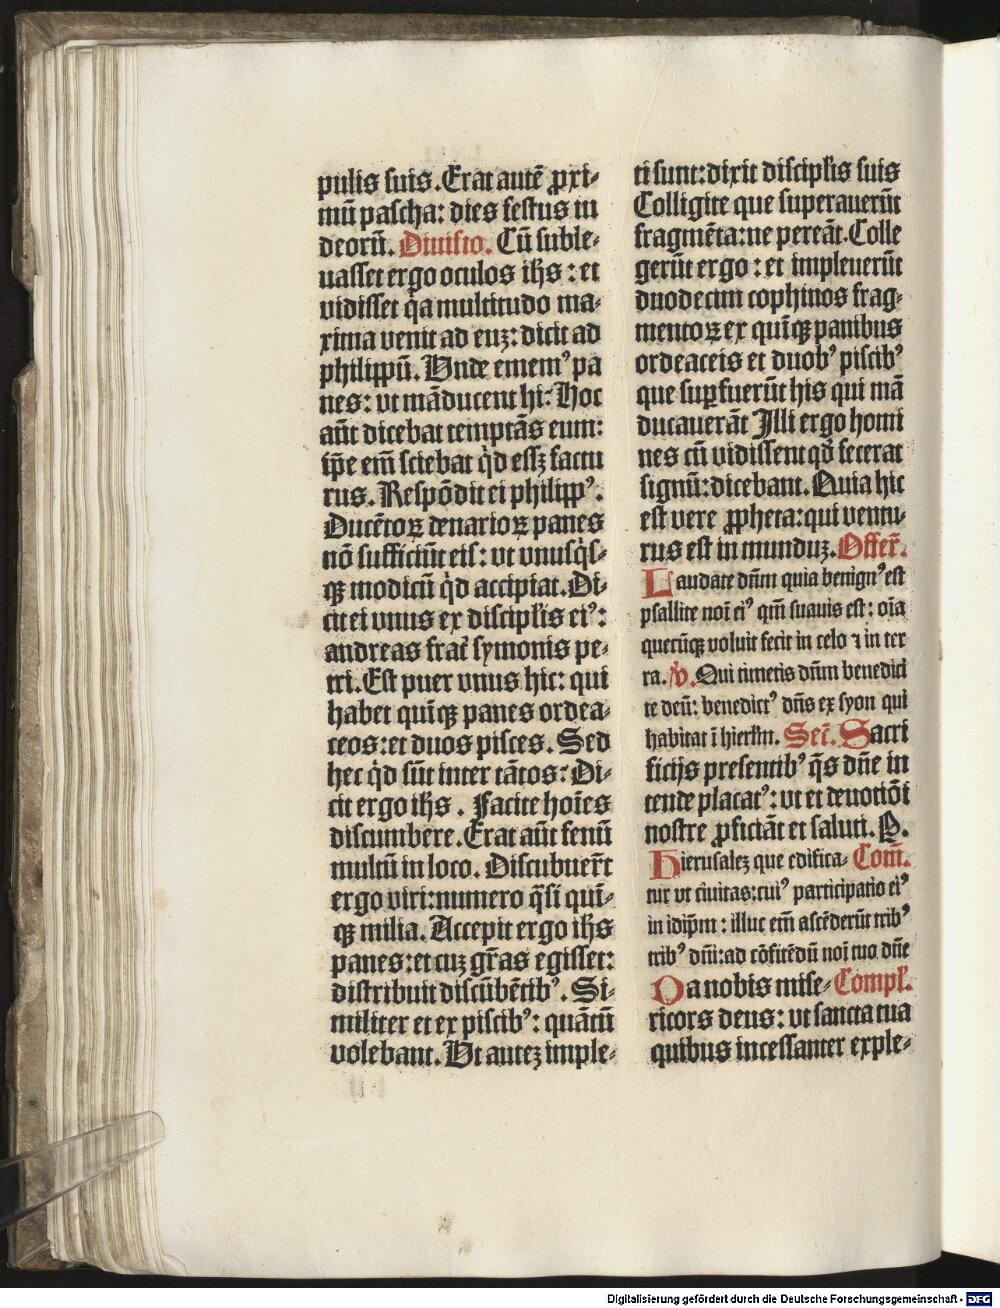 pulis suis. Erat autē ꝓxi⸗
mū pascha: dies festus iu
deorū. Diuisio. Cū suble⸗
uasset ergo oculos ihs̄: et
vidisset qͥa multitudo ma⸗
xima venit ad euꝫ: dicit ad
philippū. Vnde ememꝰ pa
nes: vt māducent hi: Hoc
aūt dicebat temptās eum:
ip̄e em̄ sciebat qͥd essꝫ factu
rus. Respōdit ei philippꝰ.
Ducētoꝝ denarioꝝ panes
nō sufficiūt eis: vt vnusqͥs⸗
qꝫ modicū qͥd accipiat. Di⸗
cit ei vnus ex discipl̄is eiꝰ:
andreas frat̄ symonis pe⸗
tri. Est puer vnus hic: qui
habet quīqꝫ panes ordea⸗
ceos: et duos pisces. Sed
hec qͥd sūt inter tātos: Di⸗
cit ergo ihs̄. Facite hoīes
discumbere. Erat aūt fenū
multū in loco. Discubuer̄t
ergo viri: numero qͣsi quī⸗
qꝫ milia. Accepit ergo ihs̄
panes: et cuꝫ gr̄as egisset:
distribuit discūbētibꝰ. Si⸗
militer et ex piscibꝰ: quātū
volebant. Vt auteꝫ imple⸗
ti sunt: dixit discipl̄is suis
Colligite que superauerūt
fragmēta: ne pereāt. Colle
gerūt ergo: et impleuerūt
duodecim cophinos frag⸗
mentoꝝ ex quīqꝫ panibus
ordeaceis et duobꝰ piscibꝰ
que suꝑfuerūt his qui mā
ducauerāt Illi ergo homi
nes cū vidissent qd̓ fecerat
signū: dicebant. Quia hic
est vere ꝓpheta: qui ventu⸗
rus est in munduꝫ. Offer̄.
Laudate dn̄m quia benignꝰ est
psallite noī eiꝰ qm̄ suauis est: oīa
quecūqꝫ voluit fecit in celo ⁊ in ter
ra. ℣. Qui timetis dn̄m benedici
te deū: benedictꝰ dn̄s ex syon qui
habitat ī hierlm̄. Sec̄. Sacri
ficijs presentibꝰ qs̄ dn̄e in
tende placatꝰ: vt et deuotiōi
nostre ꝓficiāt et saluti. P.
Hierusaleꝫ que edifica⸗ Com̄.
tur vt ciuitas: cuiꝰ participatio eiꝰ
in idip̄m: illuc em̄ ascēderūt tribꝰ
tribꝰ dn̄i: ad cōfitēdū noī tuo dn̄e
Da nobis mise⸗ Compl̄.
ricors deus: vt sancta tua
quibus incessanter exple⸗
Digitalisierung gefördert durch die Deutsche Forschungsgemeinschaft - DFG